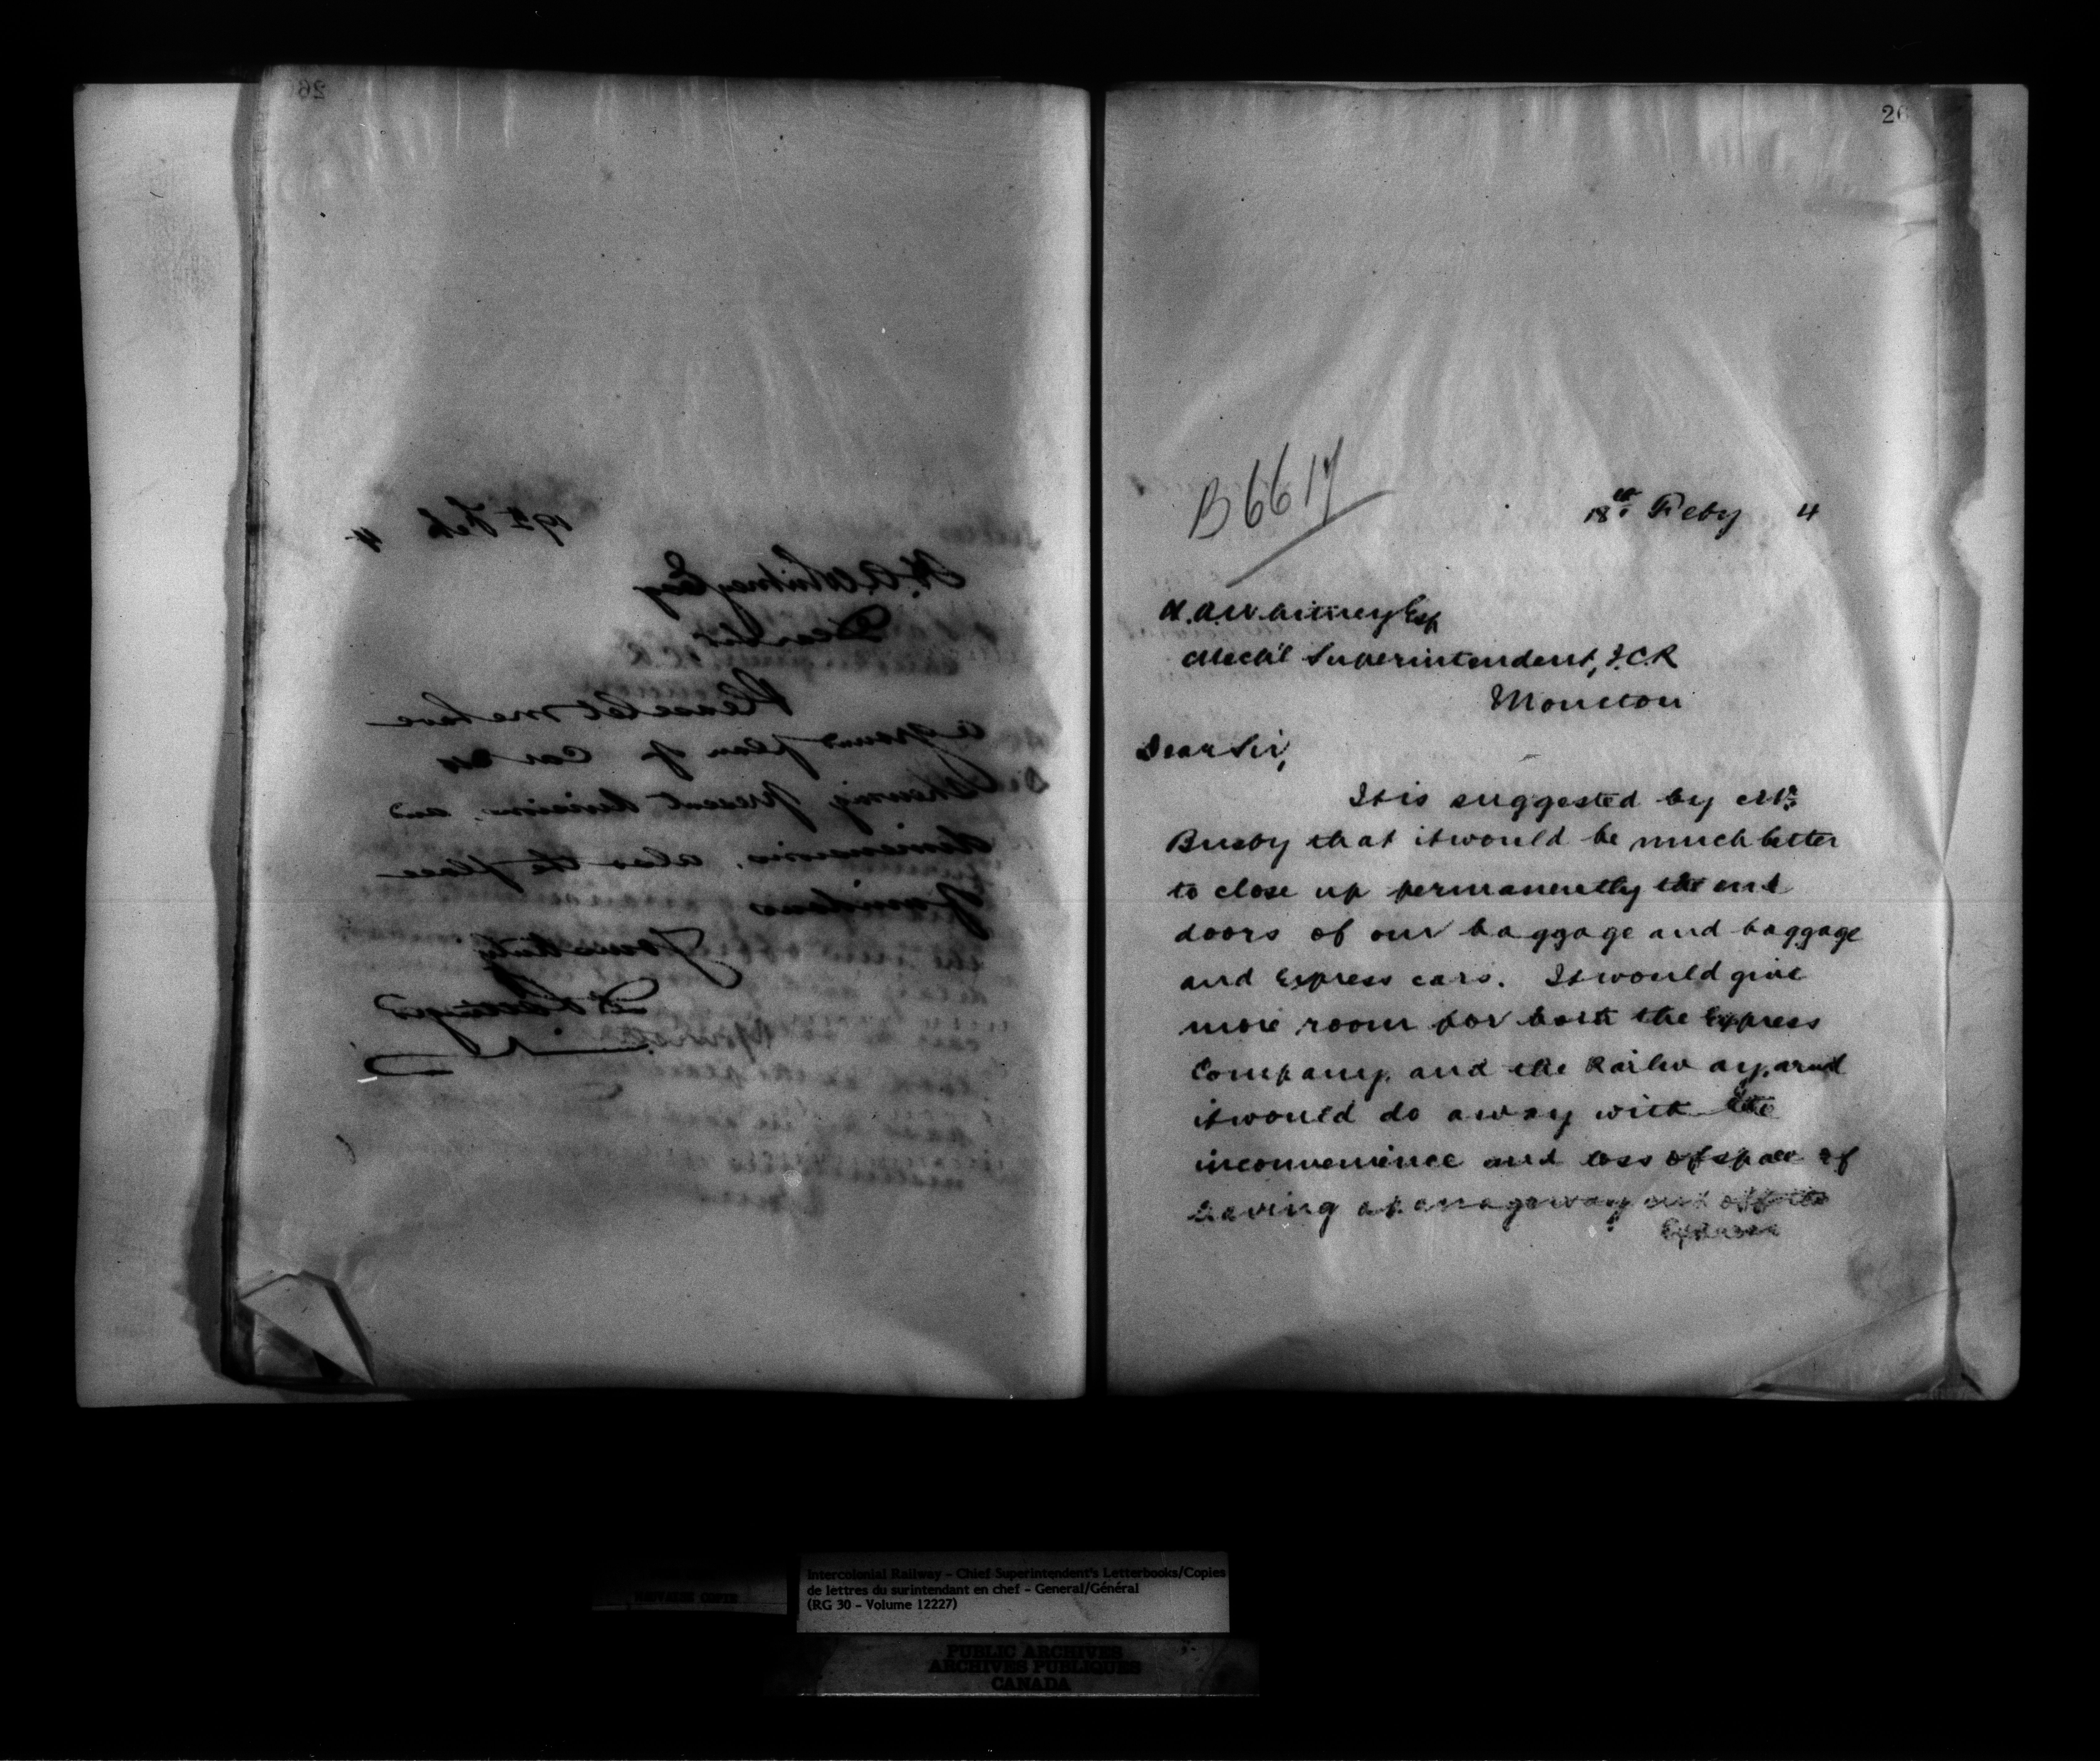 26
19th Feb 4
H. A. Whitney Esq
Dear Sir
Please let me have
a ground plan of Car
Showing present divisions and
dimensions, also the place
of windows
Yours truly
D Pottinger
26
B 6617
18th Feby 4
H. A. Whitney Esq
Mech'l Superintendent, I.C.R
Moncton
Dear Sir,
It is suggested by Mr.
Busby that it would be much better
to close up permanently the end
doors of our baggage and baggage
and Express cars. It would give
more room for both the Express
Company, and the Railway, and
it would do away with the
inconvenience and loss of space of
having a passageway cut off the
Express
Intercolonial Railway – Chief Superintendent's Letterbooks/Copies
de lettres du surintendant en chef – General/Général
(RG 30 – Volume 12227)
PUBLIC ARCHIVES
ARCHIVES PUBLIQUES
CANADA